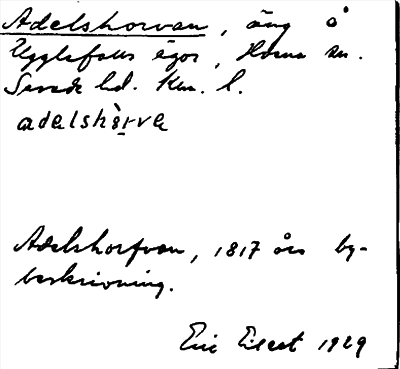 Adelshorvan, äng å
Ugglefalls egor, Horna sn.
Sevede hd. Klm. l.
adelshòrva
Adelshorfvan, 1817 års by-
beskrivning.
Eric Elgert 1929